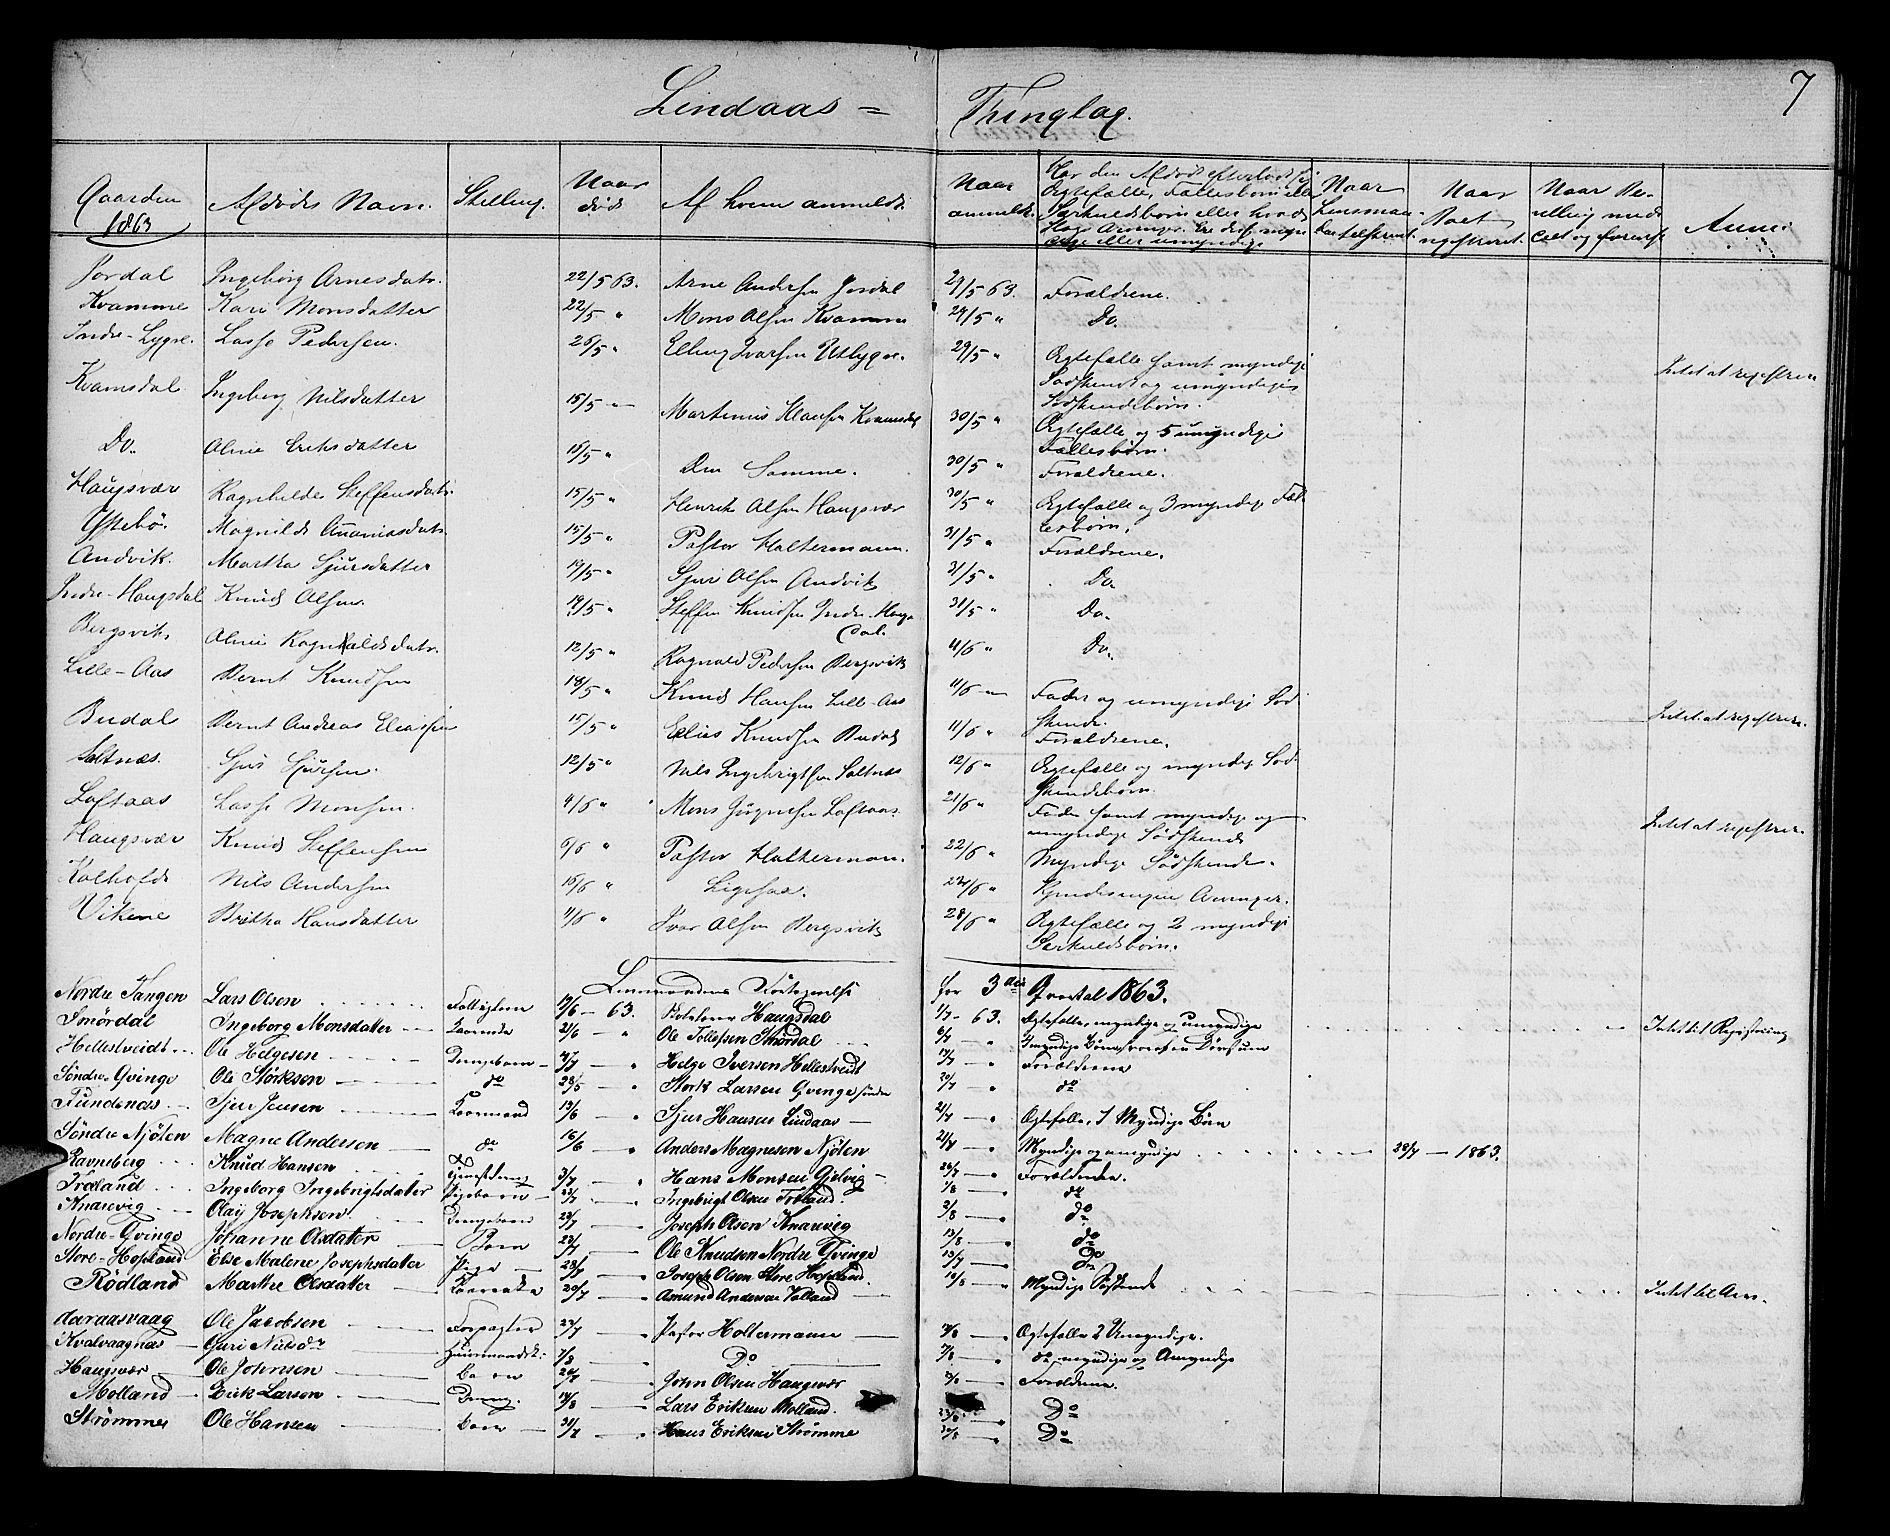 7
Lindaas = Thinglag.
Gaarden 1863 | Afdødes Navn. | Stilling. | Naar død | Af hvem anmeldt. | Naar anmeldt. | Har den Afdøde efterladt sig Ægtefælle, Fællesbørn eller Særkuldsbørn eller hvad Slags Arvinger. Ere disse myndige eller umyndige | Naar Lensmanden | Naar Boet registreret. | Anm:
Jordal | Ingeborg Arnesdatr. | 22/5 63. | Arne Andersen Jordal | 29/5 63. | Forældrene.
Kvamme | Kari Monsdatter | 22/5 " | Mons Olsen Kvamme | 29/5 " | Do.
Indre-Lygre. | Lasse Pedersen. | 26/5 " | Elling Ivarsen Utlygre. | 29/5 " | Ægtefælle samt myndige Sødskende og umyndige Sødskendebørn. | Intet at registrere
Kvamsdal | Ingeborg Nilsdatter | 15/5 " | Martinus Klausen Kvamsdal | 30/5 " | Ægtefælle og 5 umyndige Fællesbørn.
Do. | Oline Eriksdatter | 16/5 " | Den Samme. | 30/5 " | Forældrene.
Haugsvær | Ragnhilde Steffensdatr. | 15/5 " | Henrik Olsen Haugsvær | 30/5 " | Ægtefælle og 3 myndige Fællesbørn.
Ystebø. | Magnilde Ananiasdatr. | 15/5 " | Pastor Haltermann. | 31/5 " | Forældrene.
Andvik. | Martha Sjursdatter | 19/5 " | Sjur Olsen Andvik | 31/5 " | Do.
Indre-Haugsdal | Knud Olsen. | 19/5 " | Steffen Knudsen Indre-Haugsdal. | 31/5 " | Do.
Bergsvik, | Oline Ragnvaldsdatr. | 12/5 " | Ragnald Pedersen Bergsvik | 11/6 " | Do.
Lille-Aas | Bernt Knudsen | 18/5 " | Knud Hansen Lille-Aas | 11/6 " | Fader og umyndige Sødskende. | Intet at registrere.
Budal | Bernt Andreas Eliassen | 15/5 " | Elias Knudsen Budal | 11/6 " | Forældrene.
Saltnæs. | Sjur Sjursen. | 12/5 " | Nils Ingebrigtsen Saltnæs | 12/6 " | Ægtefælle og myndige Sødskendebørn.
Loftaas | Lasse Monsen. | 4/6 " | Mons Jørgensen Loftaas. | 21/6 " | Fader samt myndige og umyndige Sødskende | Intet at registrere.
Haugsvær | Knud Steffensen | 6/6 " | Pastor Halterman. | 22/6 " | Myndige Sødskende.
Kolhofde | Nils Andersen | 16/6 " | Ligesaa. | 22/6 " | Kjendes ingen Arvinger.
Vikene | Britha Hansdatter | 11/6 " | Ivar Olsen Bergsvik | 28/6 " | Ægtefælle og 2 myndige Særkuldsbørn.
Lensmandens Fortegnelse for 3die Qvartal 1863.
Nordre Tangen | Lars Olsen | Fattiglem | 19/6 - 63. | Haugsdal | 1/7 - 63. | Ægtefælle, myndige og umyndige | Intet til Registrering
Smørdal | Ingeborg Monsdatter | Kaarenke | 21/6 " | Ole Tollefsen Smørdal | 6/7 "
Hellestveidt | Ole Helgesen | Drengebarn | Helge Iversen Hellestveidt | Forældrene
Søndre Qvinge | Ole Størksen | do | 28/5 " | Størk Larsen Qvinge søndre | 20/7 " | do
Fundenæs | Sjur Jensen | Kaarmand | 13/6 " | Sjur Hansen Lindaas | 21/7 " | Ægtefælle, 1 Myndige Børn
Søndre Njøten | Magne Andersen | do | 16/6 " | Anders Magnesen Njøten | 21/7 " | Myndige og umyndige | 29/7 - 1863.
Ravneberg | Knud Hansen | 3/7 " | Hans Monsen Gjelvig | 26/7 " | Forældrene.
Træland | Ingeborg Ingebrigtsdatter | Pigebarn | 23/7 | Ingebrigt Olsen Træland. | 1/8 | do
Knarevig | Olai Josephsen | Drengebarn | 23/7 | Joseph Olsen Knarevig | 2/8 | do
Nordre-Qvinge | Johanne Olsdatter | Barn | 23/7 | Ole Knudsen Nordre Qvinge | 13/8 | do
Store-Hopland | Else Malene Josephsdatter | Pige | 28/7 | Joseph Olsen Store Hopland. | 13/7 | Do
Rødland | Marthe Olsdatter | Kaarenke | 20/7 | Amund Andersen Valland | 16/8 | Myndige Søskende | Intet til Arv.
Aaraasvaag | Ole Jacobsen | Forpagter | 23/7 | Pastor Holtermann | Ægtefælle 2 Umyndige.
Kvalvaagnæs | Guri Nilsdr | Huusmandsk. | 7/8 | Do | do myndige og Umyndige
Haugsvær | Ole Johnsen | Barn | John Olsen Haugsvær | Forældrene.
Molland | Erik Larsen | Dreng. | 14/8 | Lars Eriksen Molland. | 23/8 | Do
Strømme | Ole Hansen | Barn | 31/7 | Hans Eriksen Strømme | 30/8 | Do